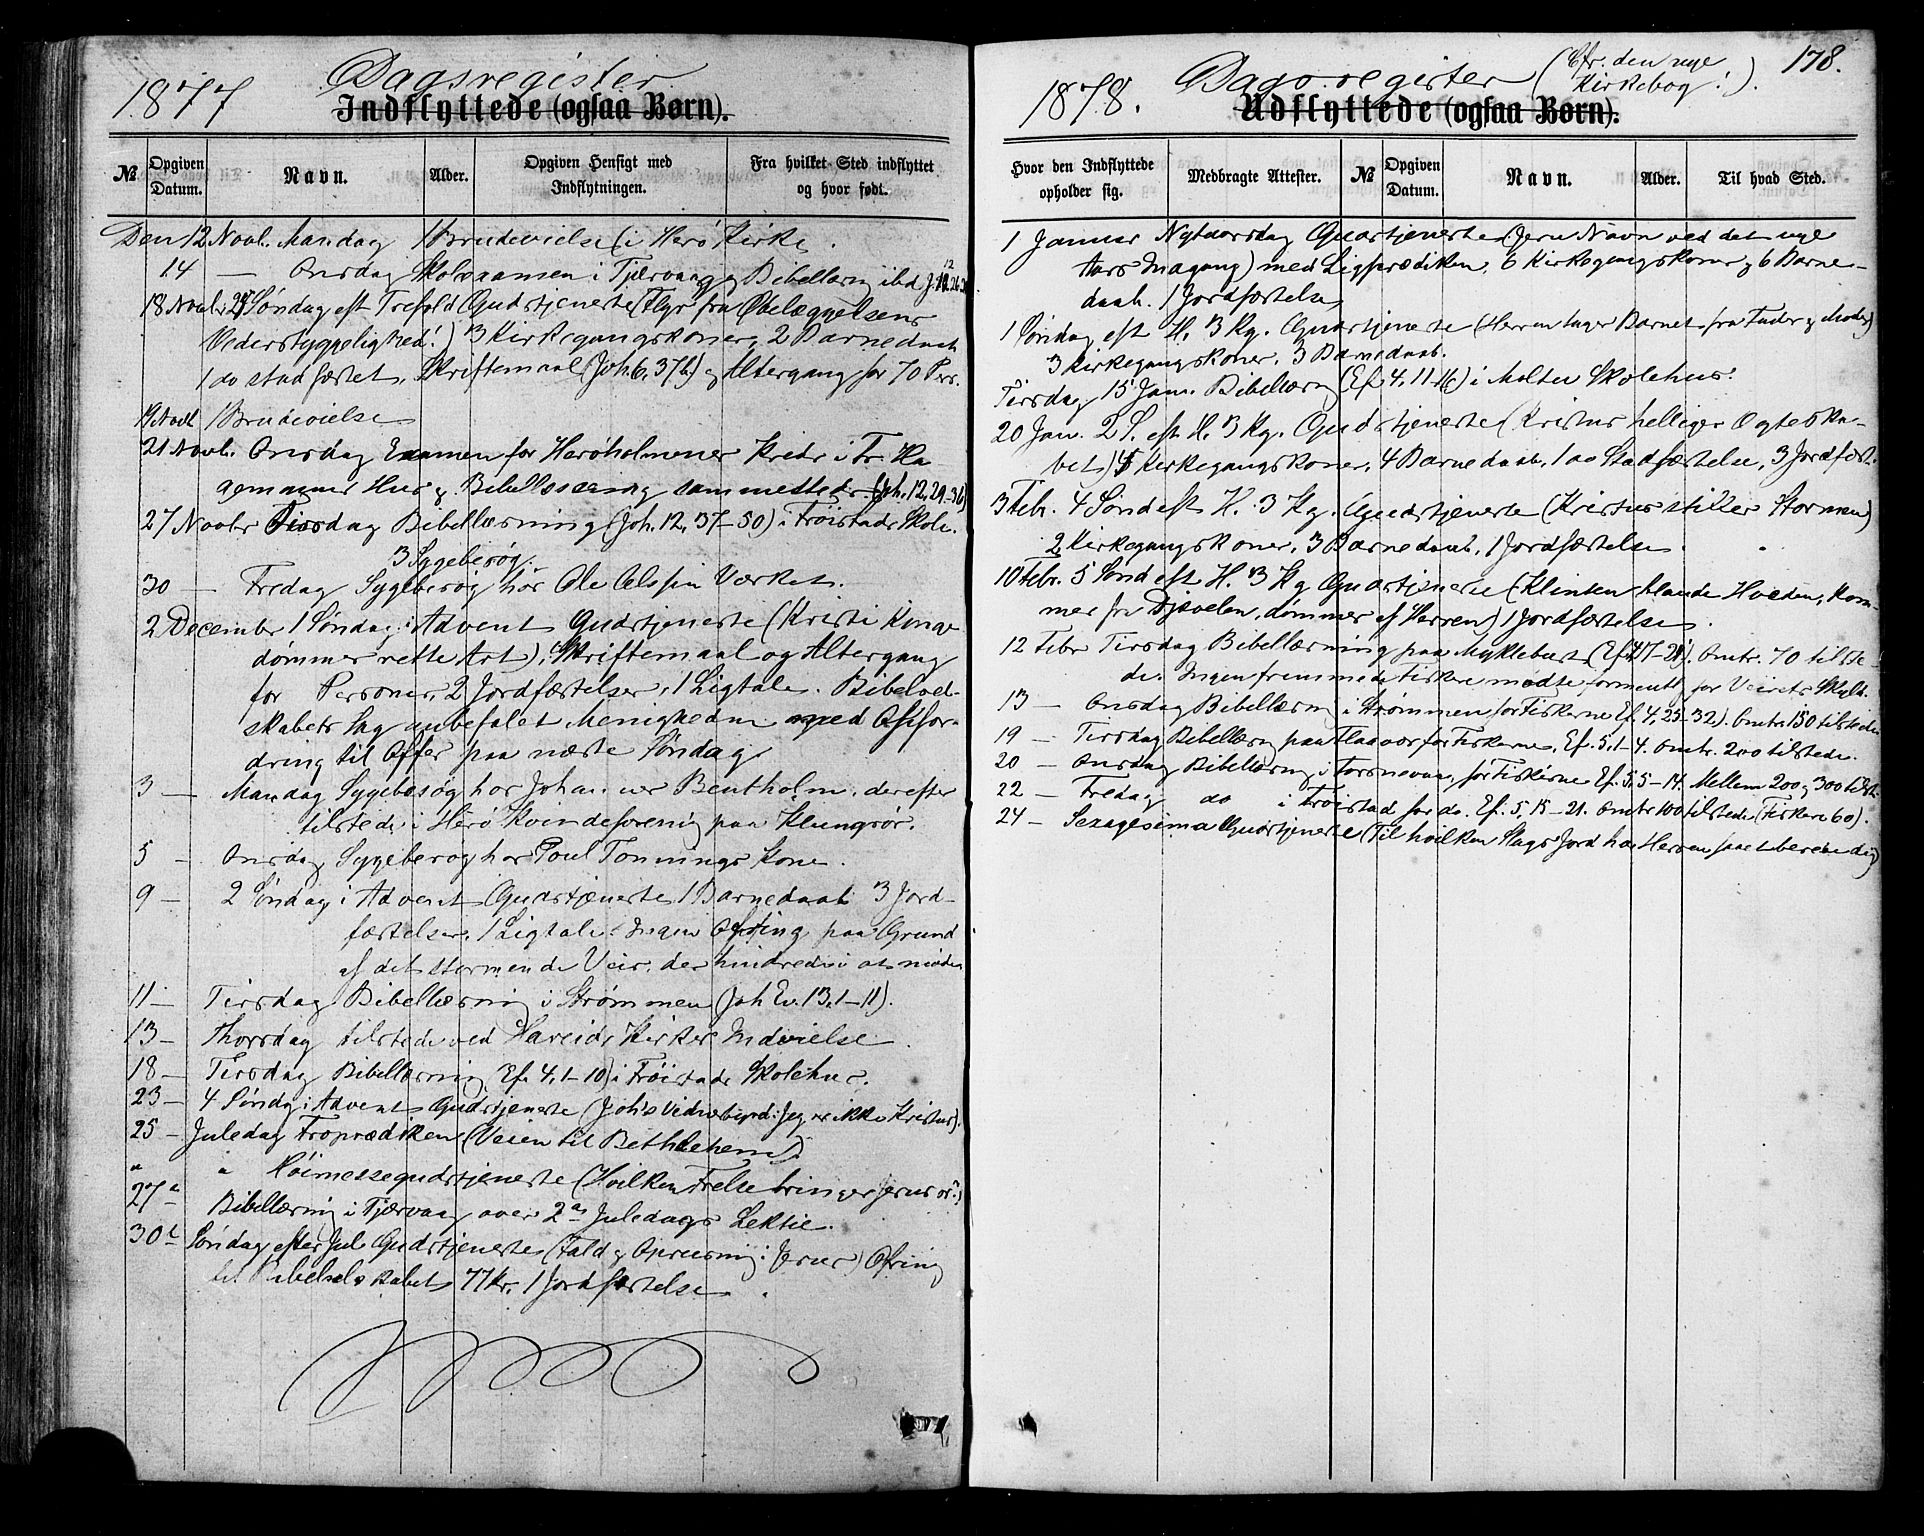 1877
Dagsregister
Indflyttede (ogsaa Børn).
№
Opgiven Datum.
Navn.
Alder.
Opgiven Hensigt med Indflytningen.
Fra hvilket Sted indflyttet og hvor født.
Den 12 Novb. Mandag 1 Brudevielse i Herø Kirke.
14 — Onsdag Skolexamen i Tjørvaag og Bibellæsn. ibd
18 Novbr. Søndag eft Trefold. Gudstjeneste (Flyr fra Ødelæggelsens
Vederstyggelighed!) 3 Kirkegangskoner, 2 Barnedaab
1 do stadfæstet, Skriftemaal (Joh. 6, 37b) og Altergang for 70 Pers.
19 Novb. 1 Brudevielse
21 Novb. Onsdag Examen for Herøholmens Kreds i Fr. Ha-
gemanns Hus og Bibellæsning sammesteds (Joh. 12, 29-36)
27 Novbr Tirsdag Bibellæsning (Joh. 12, 37-50) i Frøistads Skole.
3 Sygebesøg.
30 — Fredag Sygebesøg hos Ole Olsen Værket.
2 December 1 Søndag i Advent Gudstjeneste (Kristi Konge-
dømmes rette Art), Skriftemaal og Altergang
for Personer, 2 Jordfæstelser, 1 Ligtale. Bibelsel-
skabets Sag anbefalet Menigheden med Opfor-
dring til Offer paa næste Søndag
3 — Mandag Sygebesøg hos Johannes Bentholm, derefter
tilstede i Herø Kvindeforening paa Klungsør.
5 — Onsdag Sygebesøg hos Poul Tonnings Kone.
9 — 2 Søndag i Advent Gudstjeneste 1 Barnedaab 3 Jord-
fæstelser, 1 Ligtale. Ingen Ofring paa Grund
af det stormende Veir, der hindrede i at møde
11 — Tirsdag Bibellæsning i Strømmen (Joh Ev. 13, 1-11).
13 — Thorsdag tilstede ved Hareids Kirkes Indvielse.
18 — Tirsdag Bibellæsning Ef. 4, 1-10) i Frøistads Skolehus.
23 — 4 Søndag i Advent Gudstjeneste (Joh's Vidnesbyrd: Jeg er ikke Kristus).
25 — Juledag Froprædiken (Veien til Bethlehem).
" " Høimessegudstjeneste (Hvilken Frelse bringer Jesus os?)
27 " Bibellæsning i Tjørvaag over 2den Juledags Lektie.
30 " Søndag efter Jul Gudstjeneste (Fald og Opreisning i Jesus) Ofring
til Bibelselskabet 77 Kr. 1 Jordfæstelse.
1878.
Dagsregister (Cfr. den nye Kirkebog!).
178.
Udflyttede (ogsaa Børn).
Hvor den Indflyttede opholder sig.
Medbragte Attester.
№
Opgiven Datum.
Navn.
Alder.
Til hvad Sted.
1 Januar Nytaarsdag Gudstjeneste (Jesu Navn ved det nye
Aars Indgang) med Ligprædiken, 6 Kirkegangskoner og 6 Barne-
daab. 1 Jordfæstelse
1 Søndag eft. H. 3 Kg. Gudstjeneste (Herren tager Barnet fra Fader og Moder)
3 Kirkegangskoner, 3 Barnedaab.
Tirsdag 15 Jan. Bibellæsning (Ef. 4, 11-16) i Moltu Skolehus.
20 Jan. 2 S. eft H. 3 Kg. Gudstjeneste (Kristus helliger Ægteska-
bet) 5 Kirkegangskoner, 4 Barnedaab, 1 do Stadfæstelse, 3 Jordfæst.
3 Febr. 4 Sønd eft H. 3 Kg. Gudstjeneste (Kristus stiller Stormen)
2 Kirkegangskoner, 3 Barnedaab, 1 Jordfæstelse.
10 Febr. 5 Sønd eft H. 3 Kg Gudstjeneste (Klinten blandt Hveden, kom-
mer fra Djævelen, dømmes af Herren) 1 Jordfæstelse.
12 Febr Tirsdag Bibellæsning paa Myklebust (Ef. 4, 17-24). Omtr. 70 tilste-
de. Ingen fremmede Fiskere mødte, formentl. for Veirets Skyld.
13 — Onsdag Bibellæsning i Strømmen for Fiskerne Ef. 4, 25-32). Omtr 150 tilstede
19 — Tirsdag Bibellæsn paa Flaavær for Fiskerne, Ef. 5, 1-4. Omtr. 200 tilstede.
20 — Onsdag Bibellæsning i Fosnevaag for Fiskerne Ef. 5, 5-14. Mellem 200 og 300 tilst.
22 — Fredag do i Frøistad for do. Ef. 5, 15-21. Omtr 100 tilstede (Fiskere 60).
24 — Sexagesima Gudstjeneste (Til hvilken Slags Jord har Herren faaet berede dig)